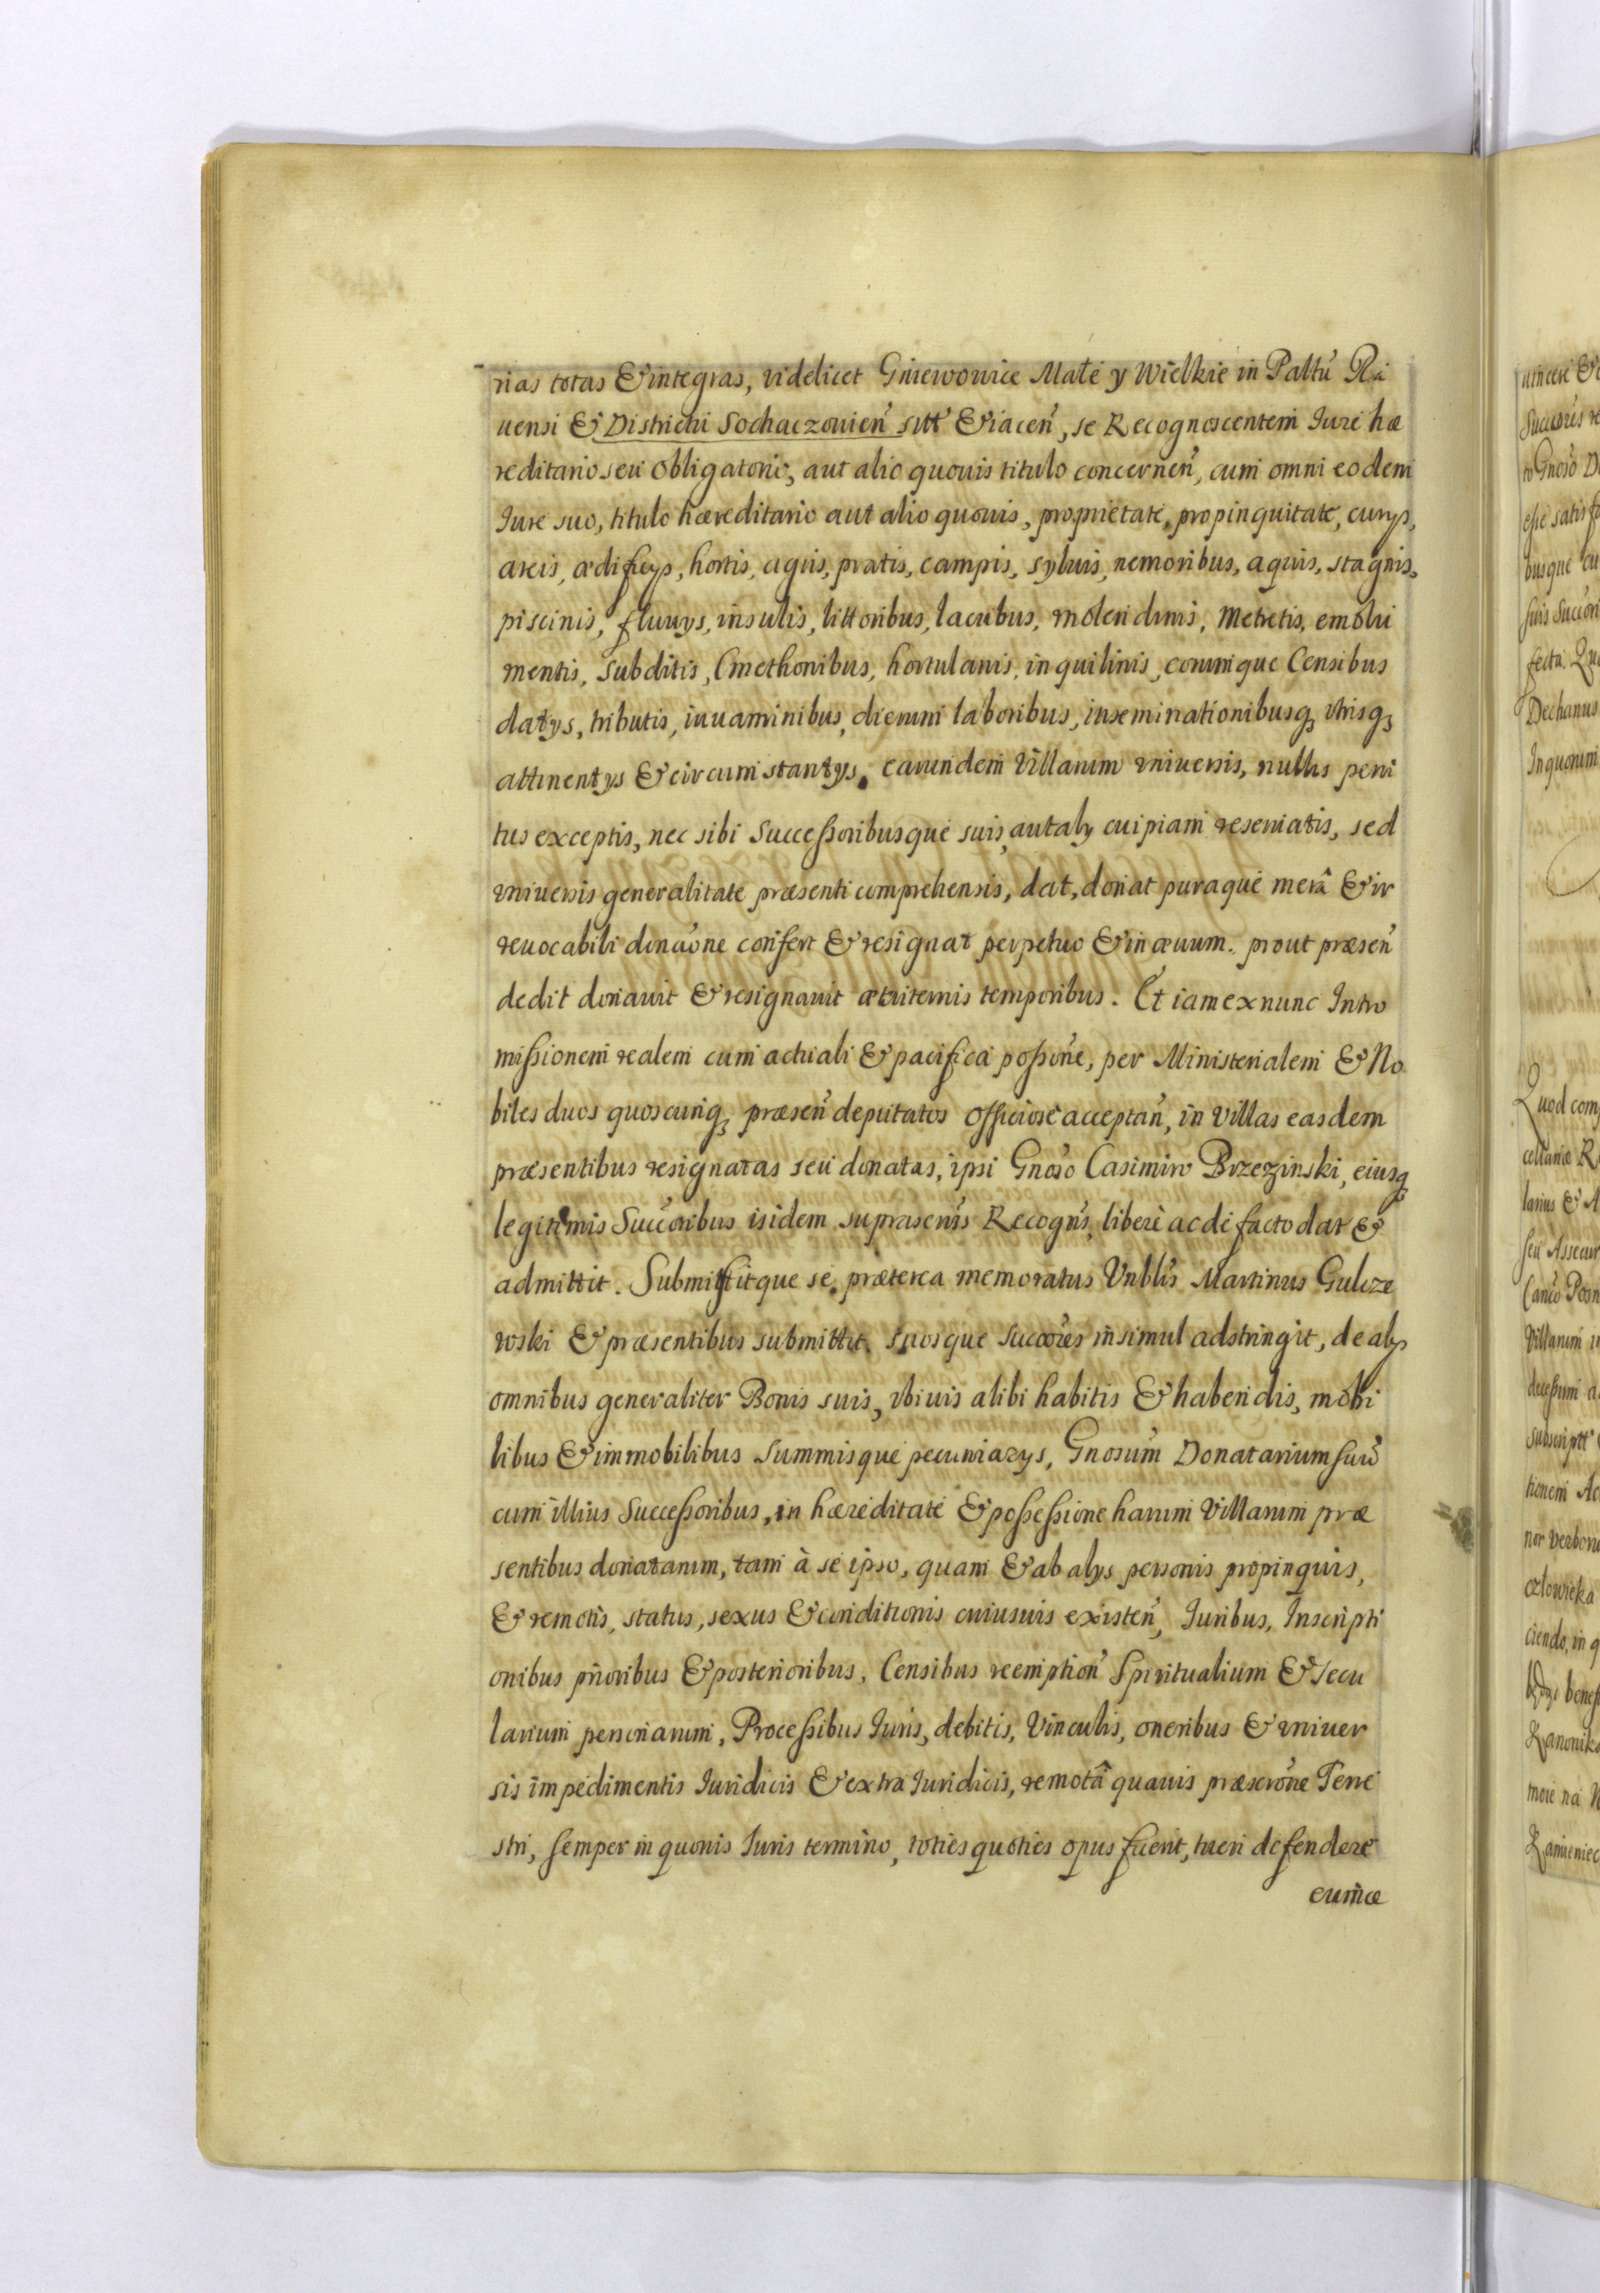 rias totas & integras, videlicet Gniewowice Małe y Wielkie in Pałtu Ra
uensi & Districtu Sochaczouien sitt & iacen, se Recognoscentem Iure hæ
reditario seu obligatorio, aut alio quouis titulo concernen, cum omni eodem
Iure suo, titulo hæreditario aut alio quouis, proprietate, propinquitate, curys,
areis, ædificys, hortis, agris, pratis, campis, syluis, nemoribus, aquis, stagnis,
piscinis, fluuys, insulis, littoribus, lacubus, molendinis, Metretis, emolu
mentis, Subditis, Cmethonibus, hortulanis, inquilinis, eorumque Censibus
datys, tributis, iuuaminibus, dierum laboribus, inseminationibusq, vtrisq,
attinentys & circumstantys, earundem Villarum vniuersis, nullis peni
tus exceptis, nec sibi Successoribusque suis, aut aly cuipiam reseruatis, sed
vniuersis generalitate præsenti comprehensis, dat, donat puraque merâ & ir
reuocabili donaõne confert & resignat perpetuo & in æuum. prout præsen
dedit donauit & resignauit æuiternis temporibus. Et iam ex nunc Intro
missionem realem cum actuali & pacifica possõne, per Ministerialem & No
biles duos quoscunq, præsen deputatos officiose acceptan, in Villas easdem
præsentibus resignatas seu donatas, ipsi Gnoso Casimiro Brzezinski, eiusq
legitimis Succoribus isidem suprasenis Recogns, libere ac de facto dat &
admittit. Submisitque se, præterea memoratus Vnblis Martinus Gulcze
wski & præsentibus submittit, suosque succores insimul adstringit, de alys
omnibus generaliter Bonis suis, vbiuis alibi habitis & habendis, mobi
libus & immobilibus Summisque pecuniarys, Gnosum Donatarium suũ
cum illius Successoribus, in hæreditate & possessione harum Villarum præ
sentibus donatarum, tam à se ipso, quam & ab alys personis propinquis,
& remotis, status, sexus & conditionis cuiusuis existen, Iuribus, Inscripti
onibus prioribus & posterioribus, Censibus reemption Spiritualium & Secu
larium personarum, Processibus Iuris, debitis, Vinculis, oneribus & vniuer
sis impedimentis Iuridicis & extra Iuridicis, remotâ quauis præscrõne Terre
stri, semper in quouis Iuris termino, toties quoties opus fuerit, tueri defendere